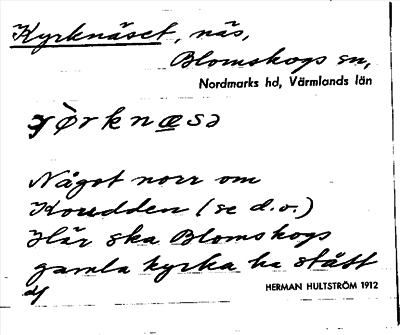 Kyrknäset, näs,
Blomskogs sn,
Nordmarks hd, Värmlands län
Något norr om
Korudden (se d. o.)
Här ska Blomskogs
gamla kyrka ha stått
HERMAN HULTSTRÖM 1912